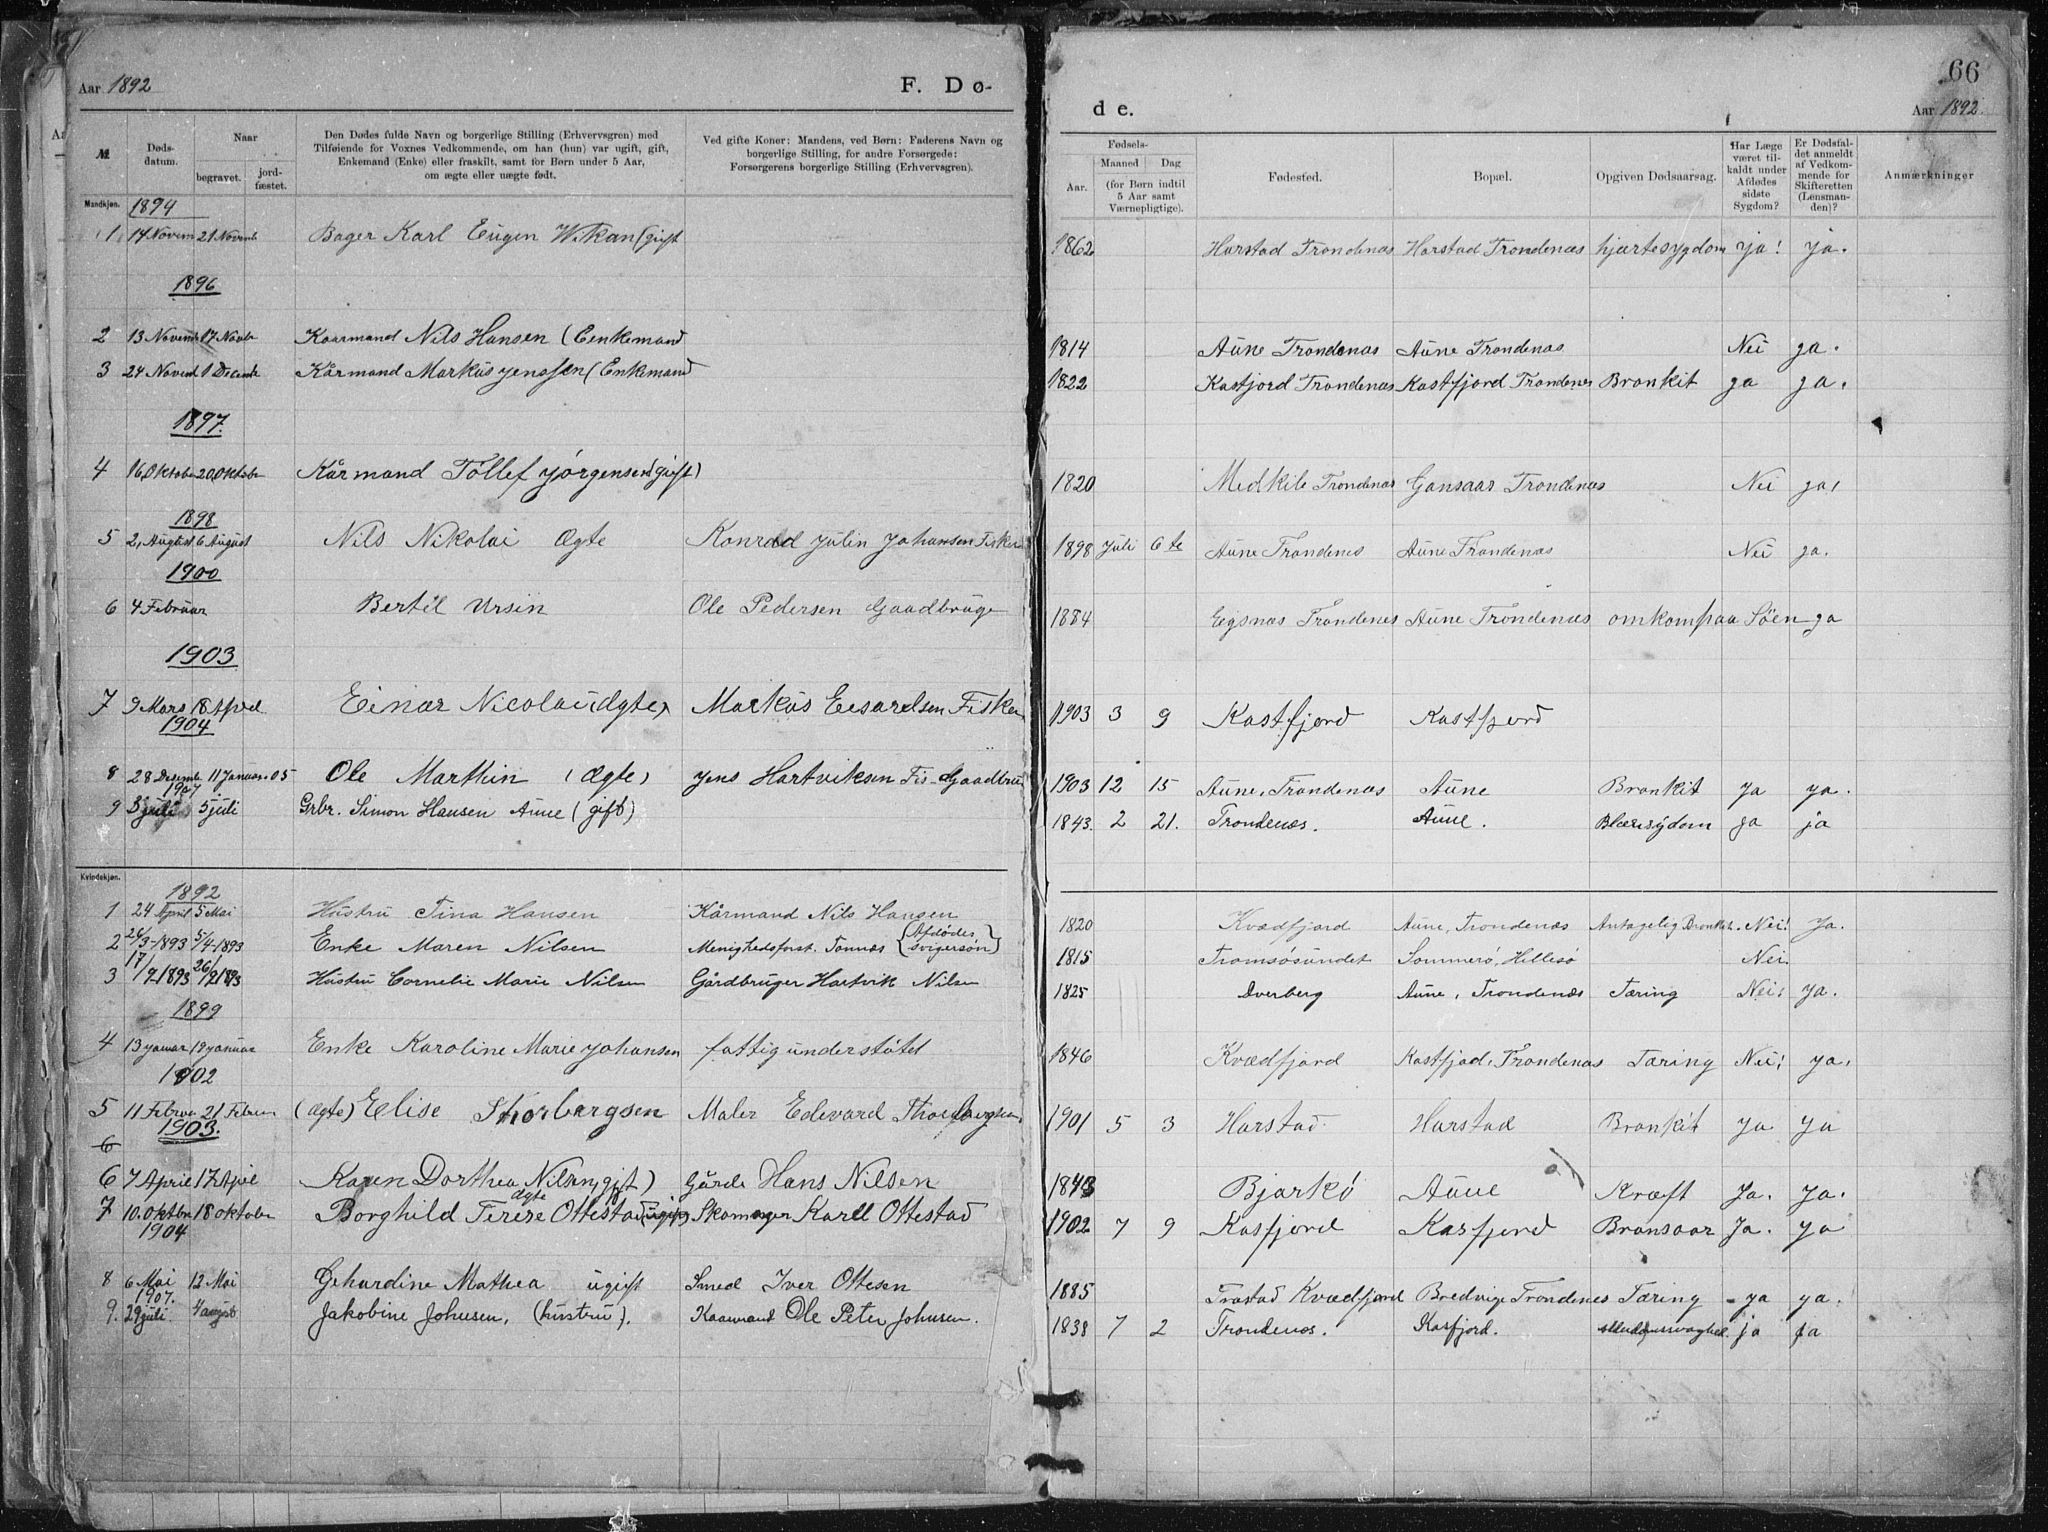 Aar 1892
F. Dø-
№
Døds-
datum.
Naar
begravet.
jord-
fæstet.
Den Dødes fulde Navn og borgerlige Stilling (Erhvervsgren) med
Tilføiende for Voxnes Vedkommende, om han (hun) var ugift, gift,
Enkemand (Enke) eller fraskilt, samt for Børn under 5 Aar,
om ægte eller uægte født.
Ved gifte Koner: Mandens, ved Børn: Faderens Navn og
borgerlige Stilling, for andre Forsørgede:
Forsørgerens borgerlige Stilling (Erhvervsgren).
Mandkjøn.
1894
1 14 Novem 21 Novemb Bager Karl Eugen Wikan (gift
1896
2 13 Novemb 17 Novbr Kaarmand Nils Hansen (Eenkemand
3 24 Novemb 1 Decembr Kårmand Markus Jenssen (Enkemand
1897.
4 16 Oktober 20 Oktober Kårmand Tollef Jørgensen (gift)
1898
5 2, August 6 August Nils Nikolai Ægte Konrad Julin Johansen Fisker
1900
6 4 Februar Bertil Ursin Ole Pedersen Gaadbruge
1903
7 9 Mars 18 April Einar Nicolai (ægte) Markus Fisker
1904
8 28 Desemb 11 Januar 05 Ole Marthin (Ægte) Jens Hartviksen Fis- Gaadbru
1907
9 3 juli 5 juli Grbr. Simon Hansen Aune (gift)
Kvindekjøn.
1892
1 24 April 5 Mai Hustru Tina Hansen Kårmand Nils Hansen
2 26/3-1893 5/4-1893 Enke Maren Nilsen Menighedsforst. Tønnæs (Afdødes svigersøn)
3 17/12 1893 26/12 1893 Hustru Cornelie Marie Nilsen Gårdbruger Hartvik Nilsen
1899
4 13 januar 19 januar Enke Karoline Marie Johansen fattigunderstøtet
1902
5 11 Februa 21 Februa (Ægte) Elise Thorbergsen Maler Edevard Thorbergsen
1903.
6
6 7 April 17 April Karen Dorthea Nilsen (gift) Gårdb Hans Nilsen
7 10. oktbr 18 oktober Borghild Terese Ottestad ægte (ugift) Skomager Karll Ottestad
1904
8 6 Mai 12 Mai Gehardine Mathea ugift Smed Iver Ottesen
1907.
9. 29 juli 4 august Jakobine Johnsen, (hustru). Kaarmand Ole Peter Johnsen.
66
de.
Aar 1892.
Fødsels-
Aar.
Maaned
Dag
(for Børn indtil
5 Aar samt
Værnepligtige).
Fødested.
Bopæl.
Opgiven Dødsaarsag.
Har Læge
været til-
kaldt under
Afdødes
sidste
Sygdom?
Er Dødsfal-
det anmeldt
af Vedkom-
mende for
Skifteretten
(Lensman-
den)?
Anmærkninger
1862 Harstad Trondenæs Harstad Trondenæs hjærtesygdom ja! ja.
1814 Aune Trondenæs Aune Trondenæs Nei ja.
1822 Kastjord Trondenæs Kastfjord Trondenes Bronkit ja ja.
1820 Medkile Trondenæs Gansaas Trondenæs Nei ja,
1898 Juli 6te Aune Trondenes Aune Trondenæs Nei ja.
1884 Eigsnæs Trondenes Aune Trondenæs omkom paa Söen ja
1903 3 9 Kastfjord Kastfjord
1903 12 15 Aune, Trondenæs Aune Bronkit ja ja.
1843. 2 21. Trondenæs. Aune. Blæresydom ja ja
1820 Kvædfjord Aune, Trondenæs Antagelig Bronkit. Nei! Ja.
1815 Tromsøsundet Sommerø, Hillesø Nei.
1825 Dverberg Aune, Trondenæs Tæring Nei! ja.
1846 Kvædfjord Kastfjod, Trondenæs Tæring Nei! ja.
1901 5 3 Harstad Harstad Bronkit Ja. Ja
1843 Bjarkö Aune Kræft Ja. Ja.
1902 7 9 Kasfjord Kasfjord Bronsaar Ja. ja
1885 Trastad Kvædfjord Bredvige Trondenes Tæring ja ja.
1838 7 2 Trondenæs. Kasfjord. ja ja